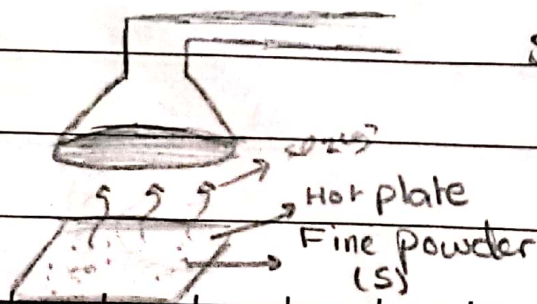 Hot plate
Fine powder
(S)